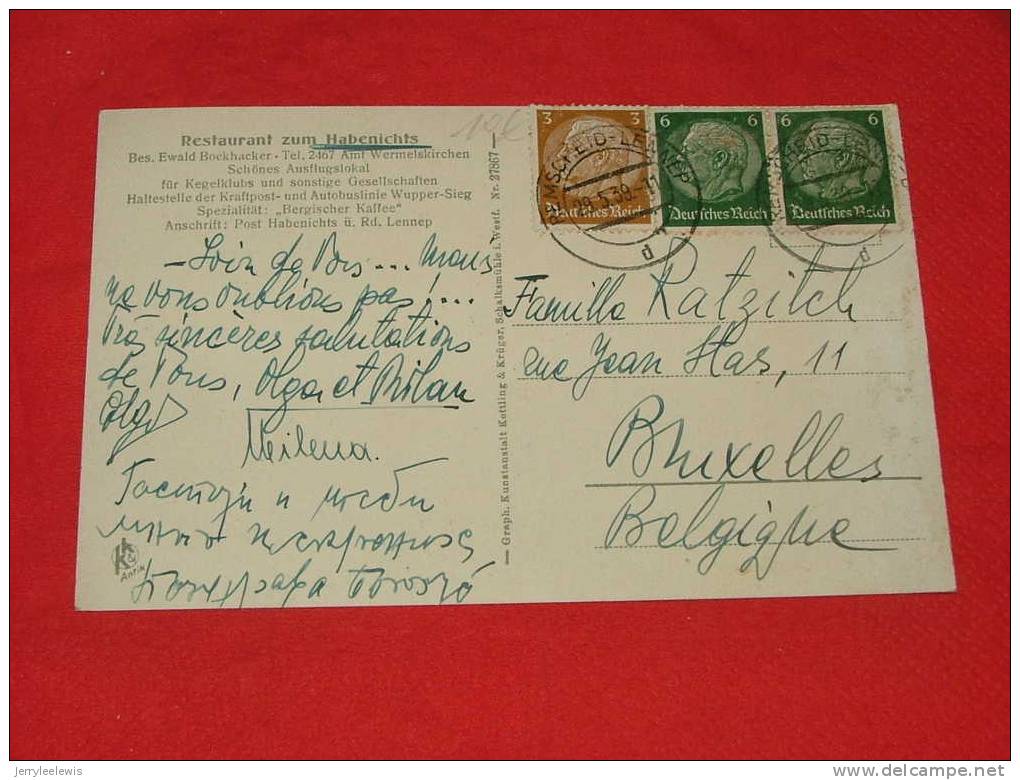 Restaurant zum Habenichts
Bes. Ewald Bockhacker - Tel. 2467 Amt Wermelskirchen
Schönes Ausflugslokal
für Kegelklubs und sonstige Gesellschaften
Haltestelle der Kraftpost- und Autobuslinie Wupper-Sieg
Spezialität: „Bergischer Kaffee“
Anschrift: Post Habenichts ü. Rd. Lennep
- Loin de Vous ... mais
ne vous oublions pas! ...
Très sincères salutations
de Vous, Olga et Milan
Olga
Milena.
и
много
Graph. Kunstanstalt Kettling & Krüger, Schalksmühle i. Westf. Nr. 27867
3 3
Deutsches Reich
6 6
Deutsches Reich
6 6
Deutsches Reich
REMSCHEID-LENNEP
29.5.39.-11
d
REMSCHEID-LENNEP
d
Famille Ratzitch
rue Jean Stas, 11
Bruxelles
Belgique
K&K
jerryleelewis
www.delcampe.net